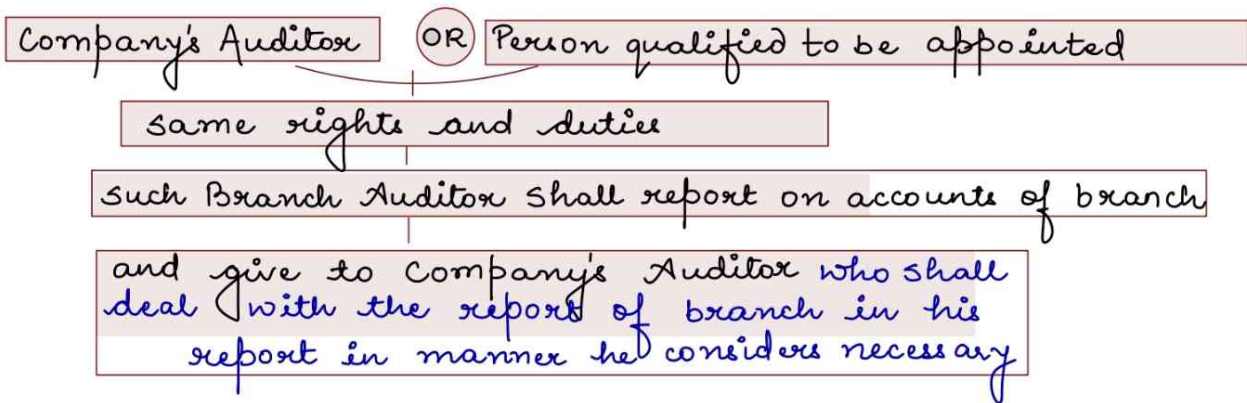 Company's Auditor OR Person qualified to be appointed
same rights and duties
such Branch Auditor shall report on accounts of branch
and give to Company's Auditor who shall
deal with the report of branch in his
report in manner he considers necessary